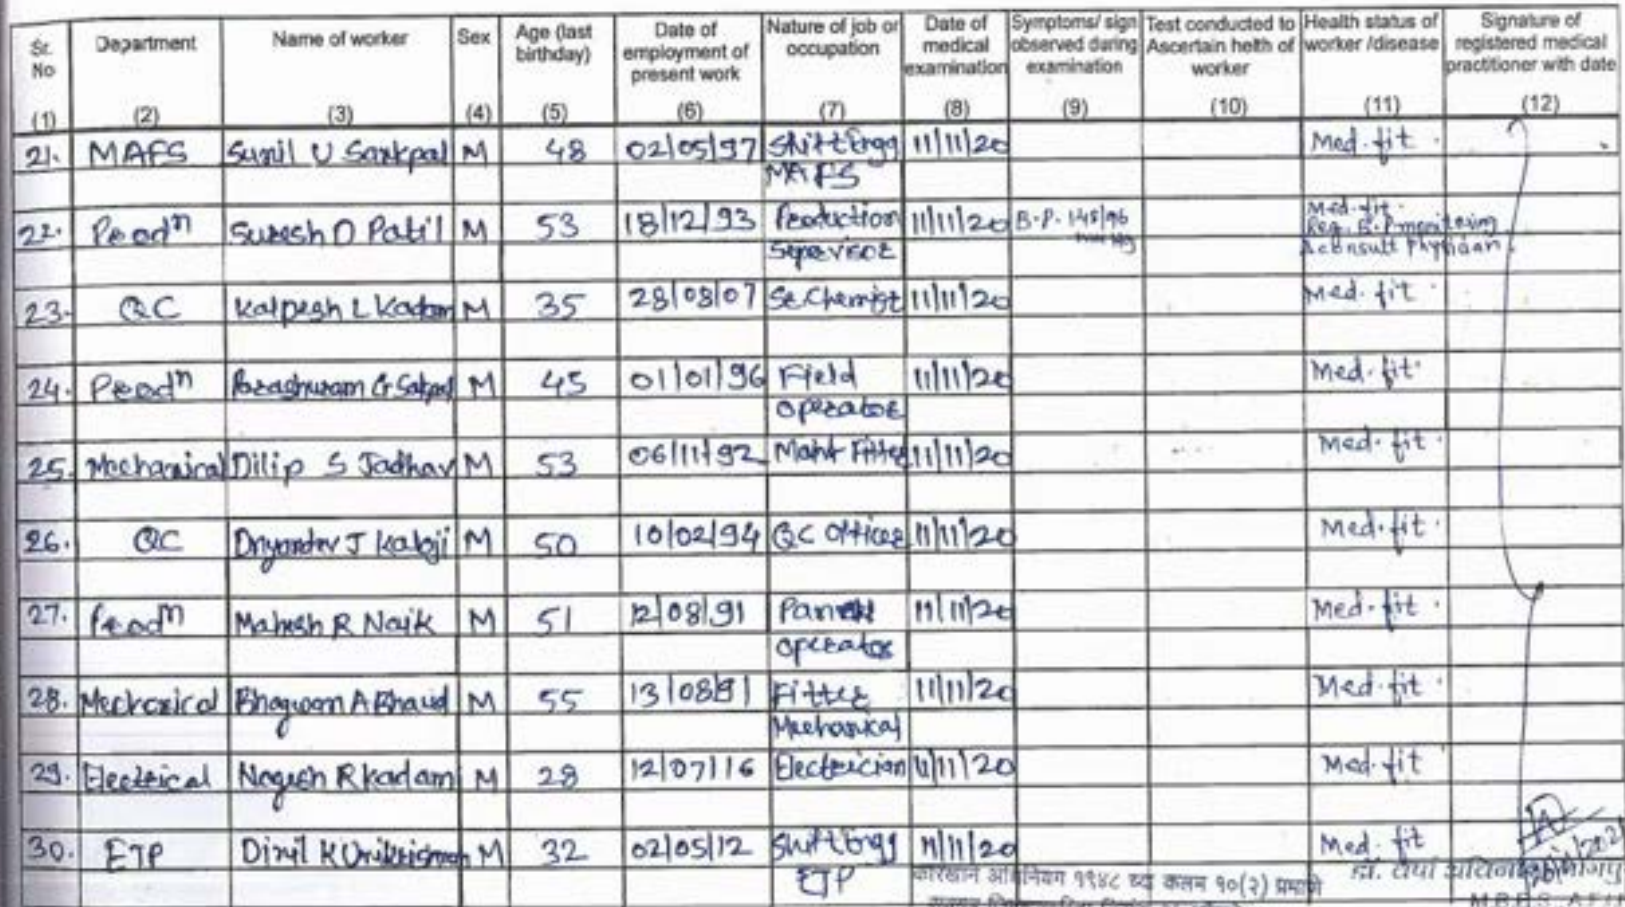 Sr. No Department Name of worker Sex Age (last birthday) Date of employment of present work Nature of job or occupation Date of medical examination Symptoms/ sign observed during examination Test conducted to Ascertain helth of worker Health status of worker /disease Signature of registered medical practitioner with date
(1) (2) (3) (4) (5) (6) (7) (8) (9) (10) (11) (12)
21. MAFS Sunil U Sankpal M 48 02/05/97 Shift Engg 11/11/20 Med. fit.
MAFS
22. Prodn Suresh D Patil M 53 18/12/93 Production 11/11/20 B.P. 148/96 Med. fit.
Supervisor Reg. B.P monitoring
& consult Physician
23. QC Kalpesh L Kadam M 35 28/08/07 Sr. Chemist 11/11/20 Med. fit.
24. Prodn Parashuram G M 45 01/01/96 Field 11/11/20 Med. fit.
operator
25. Mechanical Dilip S Jadhav M 53 06/11/92 Fitter 11/11/20 Med. fit.
26. QC J M 50 10/02/94 QC Officer 11/11/20 Med. fit.
27. Prodn Mahesh R Naik M 51 12/08/91 Pannel 11/11/20 Med. fit.
operator
28. Mechanical Bhagwan A M 55 13/08/91 Fitter 11/11/20 Med. fit.
Mechanical
29. Electrical Nagesh R Kadam M 28 12/07/16 Electrician 11/11/20 Med. fit
30. ETP K M 32 02/05/12 Shift Engg 11/11/20 Med. fit
ETP
१९४८ कलम १०(२) प्रमाणे